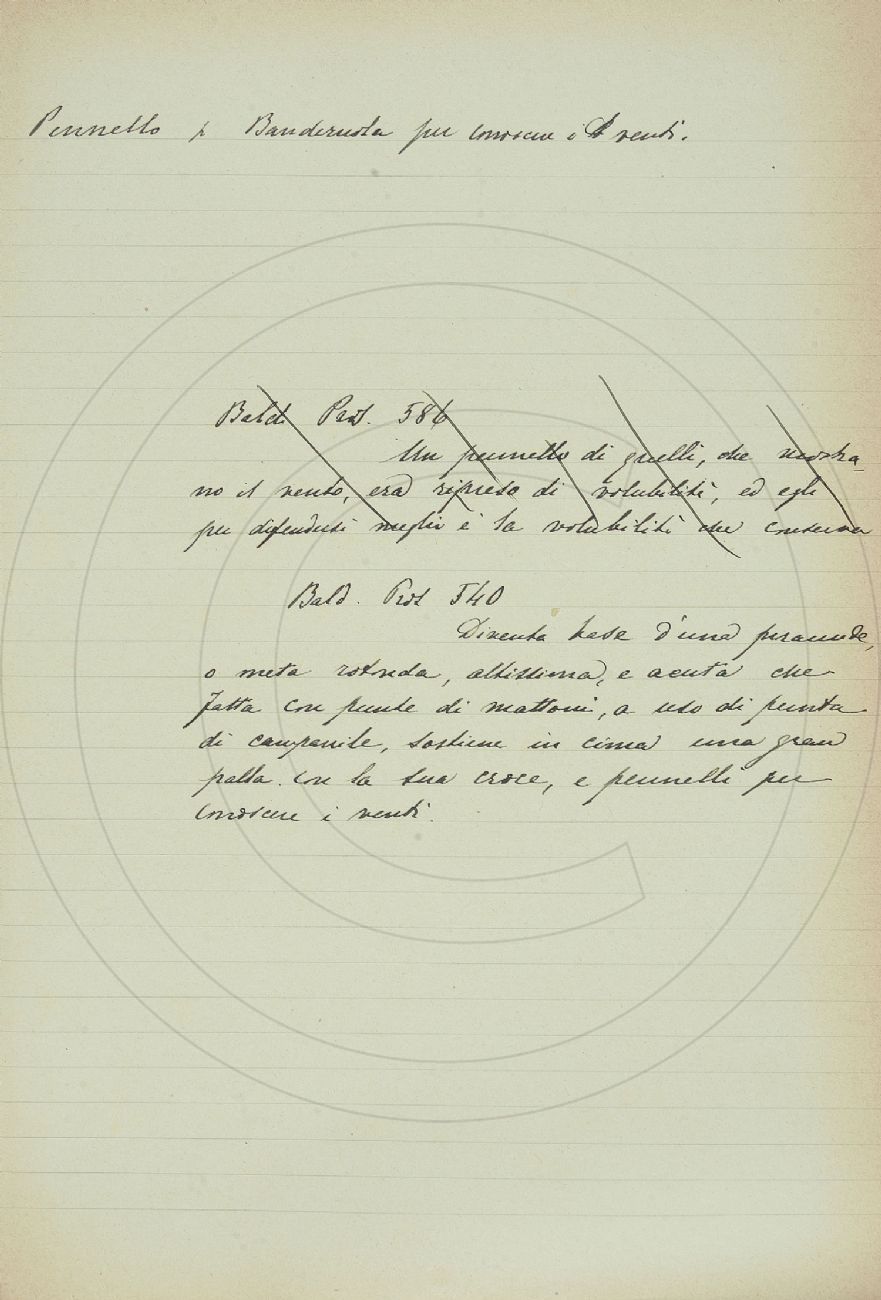 Pennello p Banderuola per conoscere i venti.
Bald. Pros. 586
Un pennello di quelli, che mostra_
no il vento, era ripreso di volubilità, ed egli
per difendersi meglio è la volubilità che conserva
Bald. Pros 540
Diventa base d'una piramide,
o meta rotonda, altissima, e acuta che
fatta con punte di mattoni, a uso di punta
di campanile, sostiene in cima una gran
palla con la sua croce, e pennelli per
conoscere i venti.